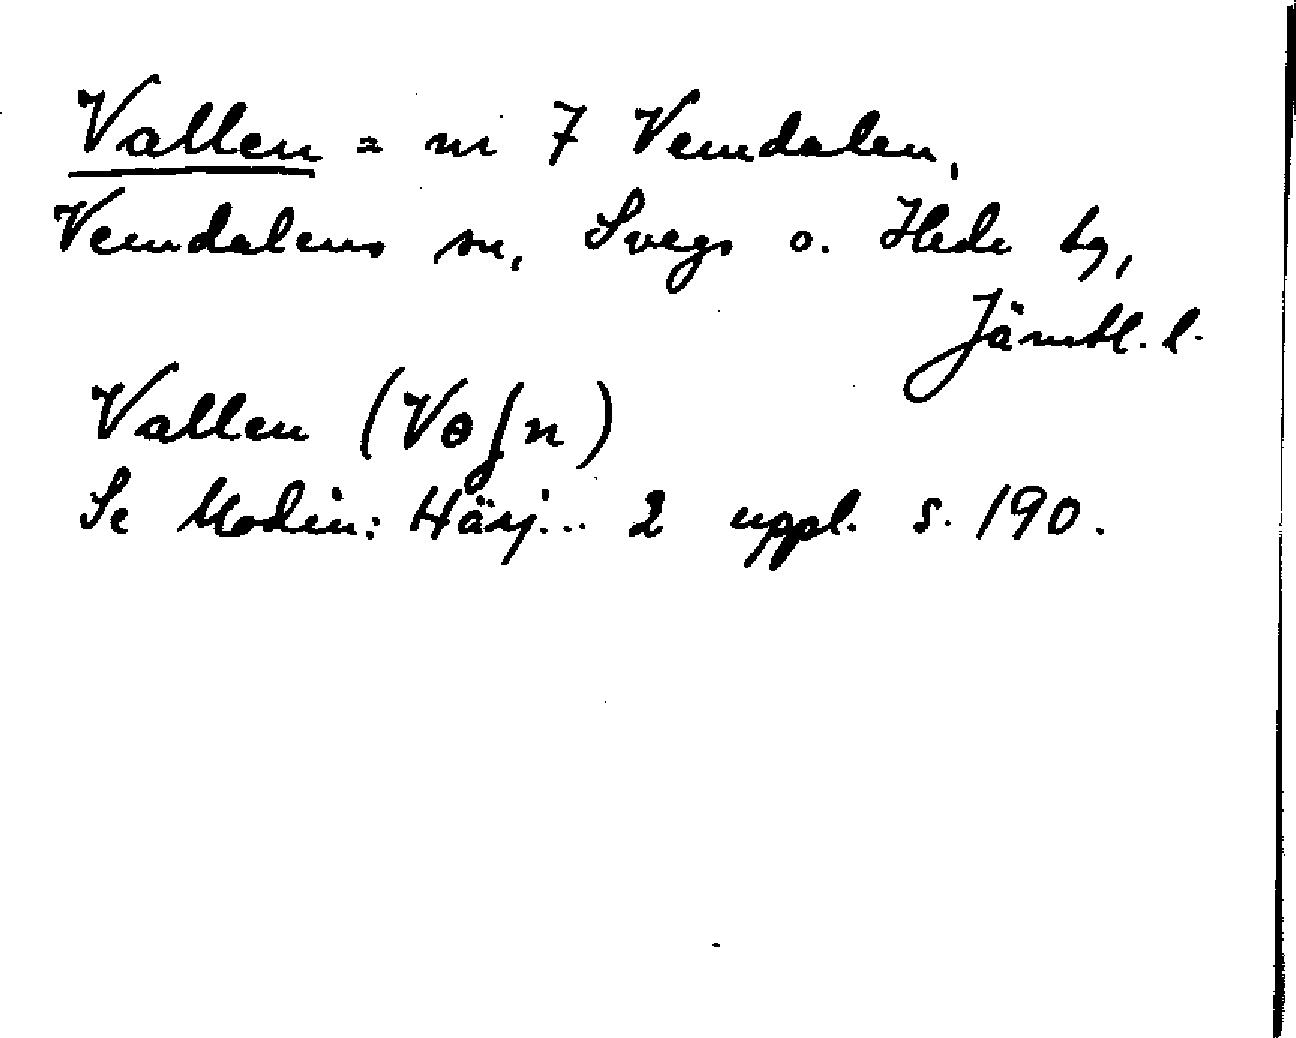 Vallen = nr 7 Vemdalen,
Vemdalens sn, Svegs o. Hede tg,
Jämtl. l.
Vallen (Vɵʃn)
Se Modin: Härj... 2 uppl. s. 190.